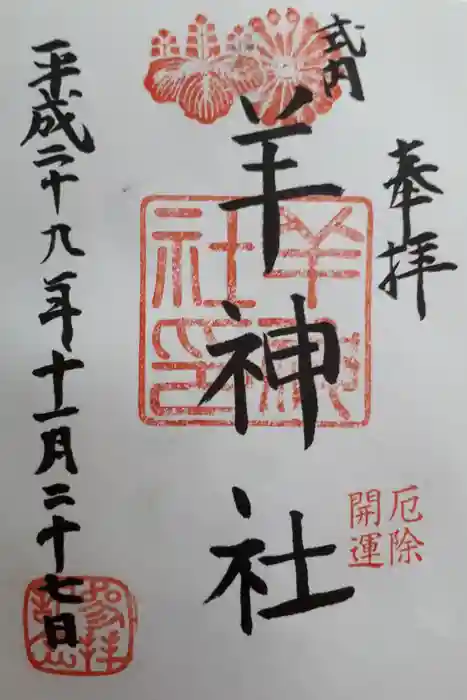 式内
奉拝
羊神社
羊神社印
厄除
開運
平成二十九年十一月二十七日
参拝記念